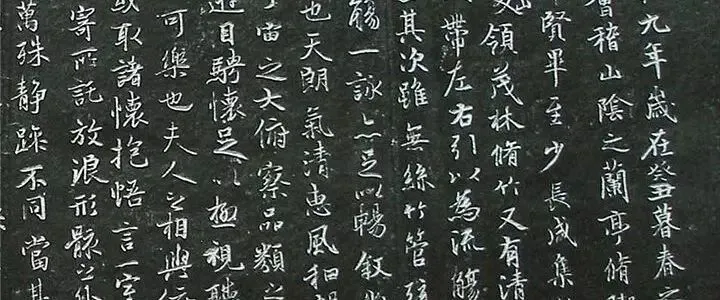 九年歲在癸丑暮春之
會稽山陰之蘭亭脩
賢畢至少長咸集
領茂林脩竹又有清
帶左右引以為流觴
其次雖無絲竹管弦
觴一詠亦足以暢敘
也天朗氣清惠風和暢
宙之大俯察品類之
遊目騁懷足以極視聽
可樂也夫人之相與俯
或取諸懷抱悟言一室
寄所託放浪形骸之外
萬殊靜躁不同當其